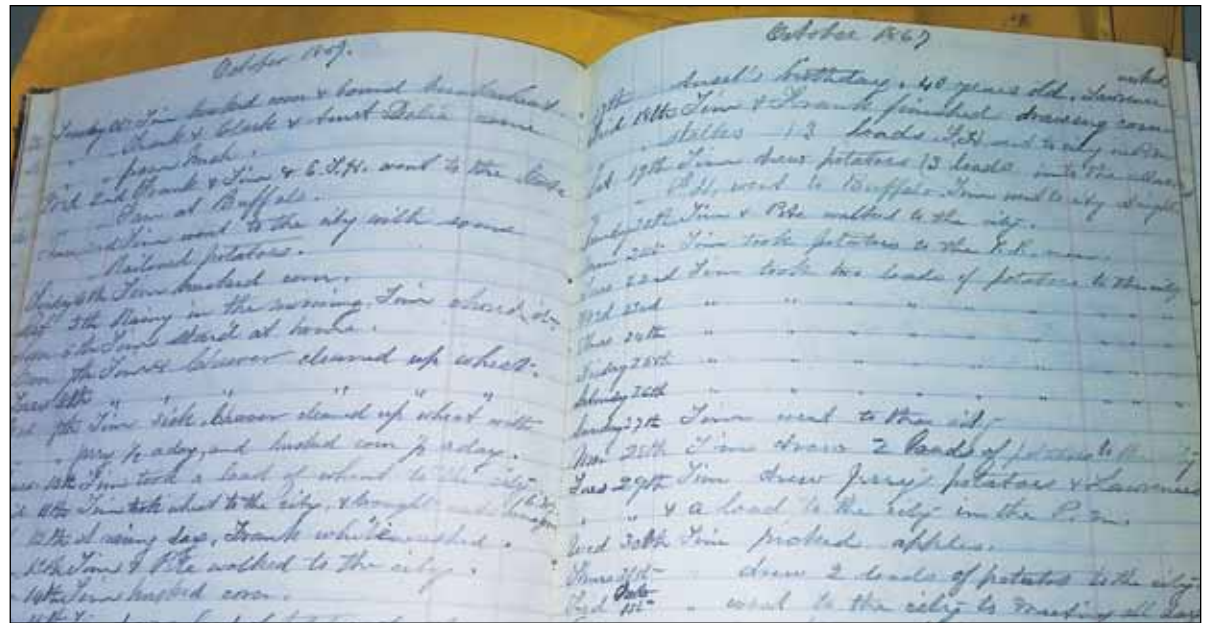 October 1867.
Tuesday 1st Tim husked corn & bound buckwheat.
" " Frank & Clark & Aunt Delia came
" " from Mich.
Wed 2nd Frank & Tim & C.F.H. went to the State
" Fair at Buffalo.
Tim went to the city with some
potatoes.
Friday 4th Tim husked corn.
5th Rainy in the morning, Tim
6th Tim staid at home.
Mon 7th Tim & Weaver cleaned up wheat.
Tues 8th " " " " "
9th Tim sick. Weaver cleaned up wheat with
" " Jerry ½ a day, and husked corn ½ a day.
10th Tim took a load of wheat to the city
11th Tim took wheat to the city, & brought
12th A rainy day, Frank whitewashed.
13th Tim & Pete walked to the city.
14th Tim husked corn.
15th Tim
October 1867
17th Ansel's birthday. 40 years old. Lawrence
Frid 18th Tim & Frank finished drawing corn
" stalks 13 loads. went to city in P.m
Sat 19th Tim drew potatoes 13 loads into the
went to Buffalo. Tim went to city at night
Sunday 20th Tim & Pete walked to the city.
Mon 21st Tim took potatoes to the R.R. man.
Tues 22nd Tim took two loads of potatoes to the city
Wed 23rd " " " " " " " " "
Thurs 24th " " " " " " " " "
Friday 25th " " " " " " " " "
Saturday 26th " " " " " " " " "
Sunday 27th Tim went to the city
Mon 28th Tim drew 2 loads of potatoes to the city
Tues 29th Tim drew Jerry's potatoes & Lawrences
" " & a load to the city in the P.m.
Wed 30th Tim picked apples.
Thurs 31st " drew 2 loads of potatoes to the city
1st " went to the city to meeting all day